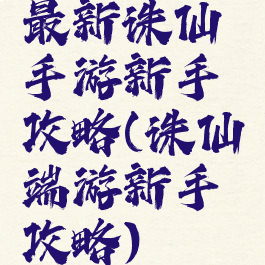 最新诛仙
手游新手
攻略(诛仙
端游新手
攻略)